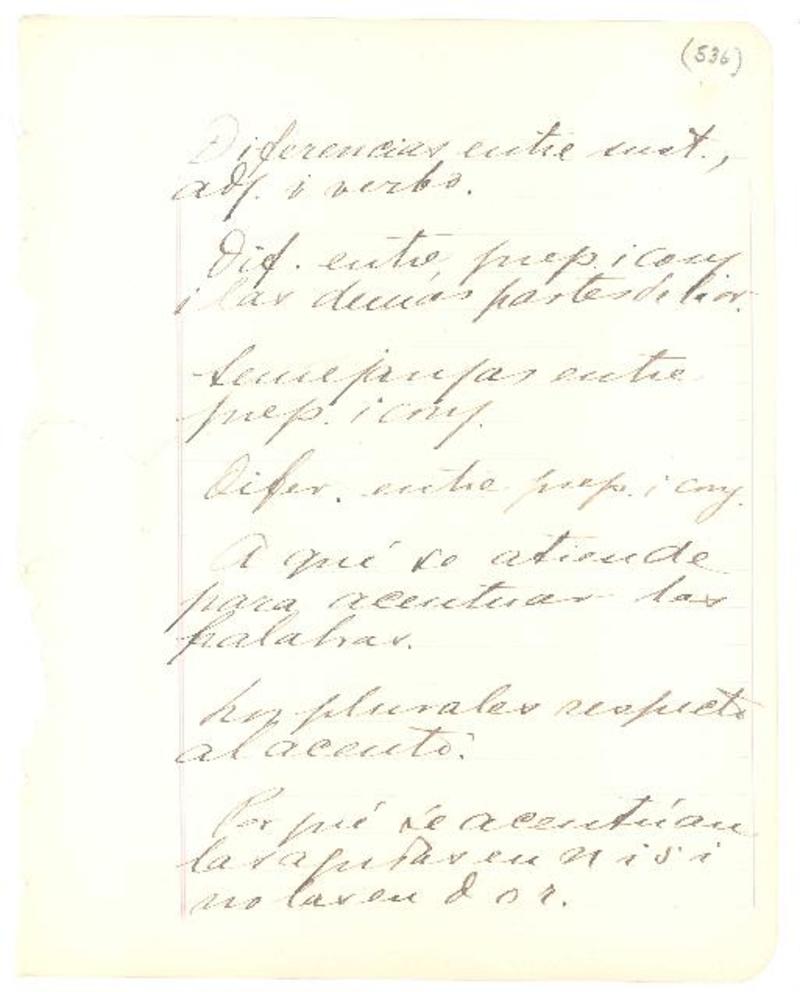 (536)
Diferencias entre sust.,
adj. i verbo.
Dif. entre prep. i conj
i las demás partes de la or.
Semejanzas entre
prep. i conj.
Difer. entre prep. i conj.
A qué se atiende
para acentuar las
palabras.
Los plurales respecto
al acento.
Por qué se acentúan
las agudas en n i s i
no las en d o r.